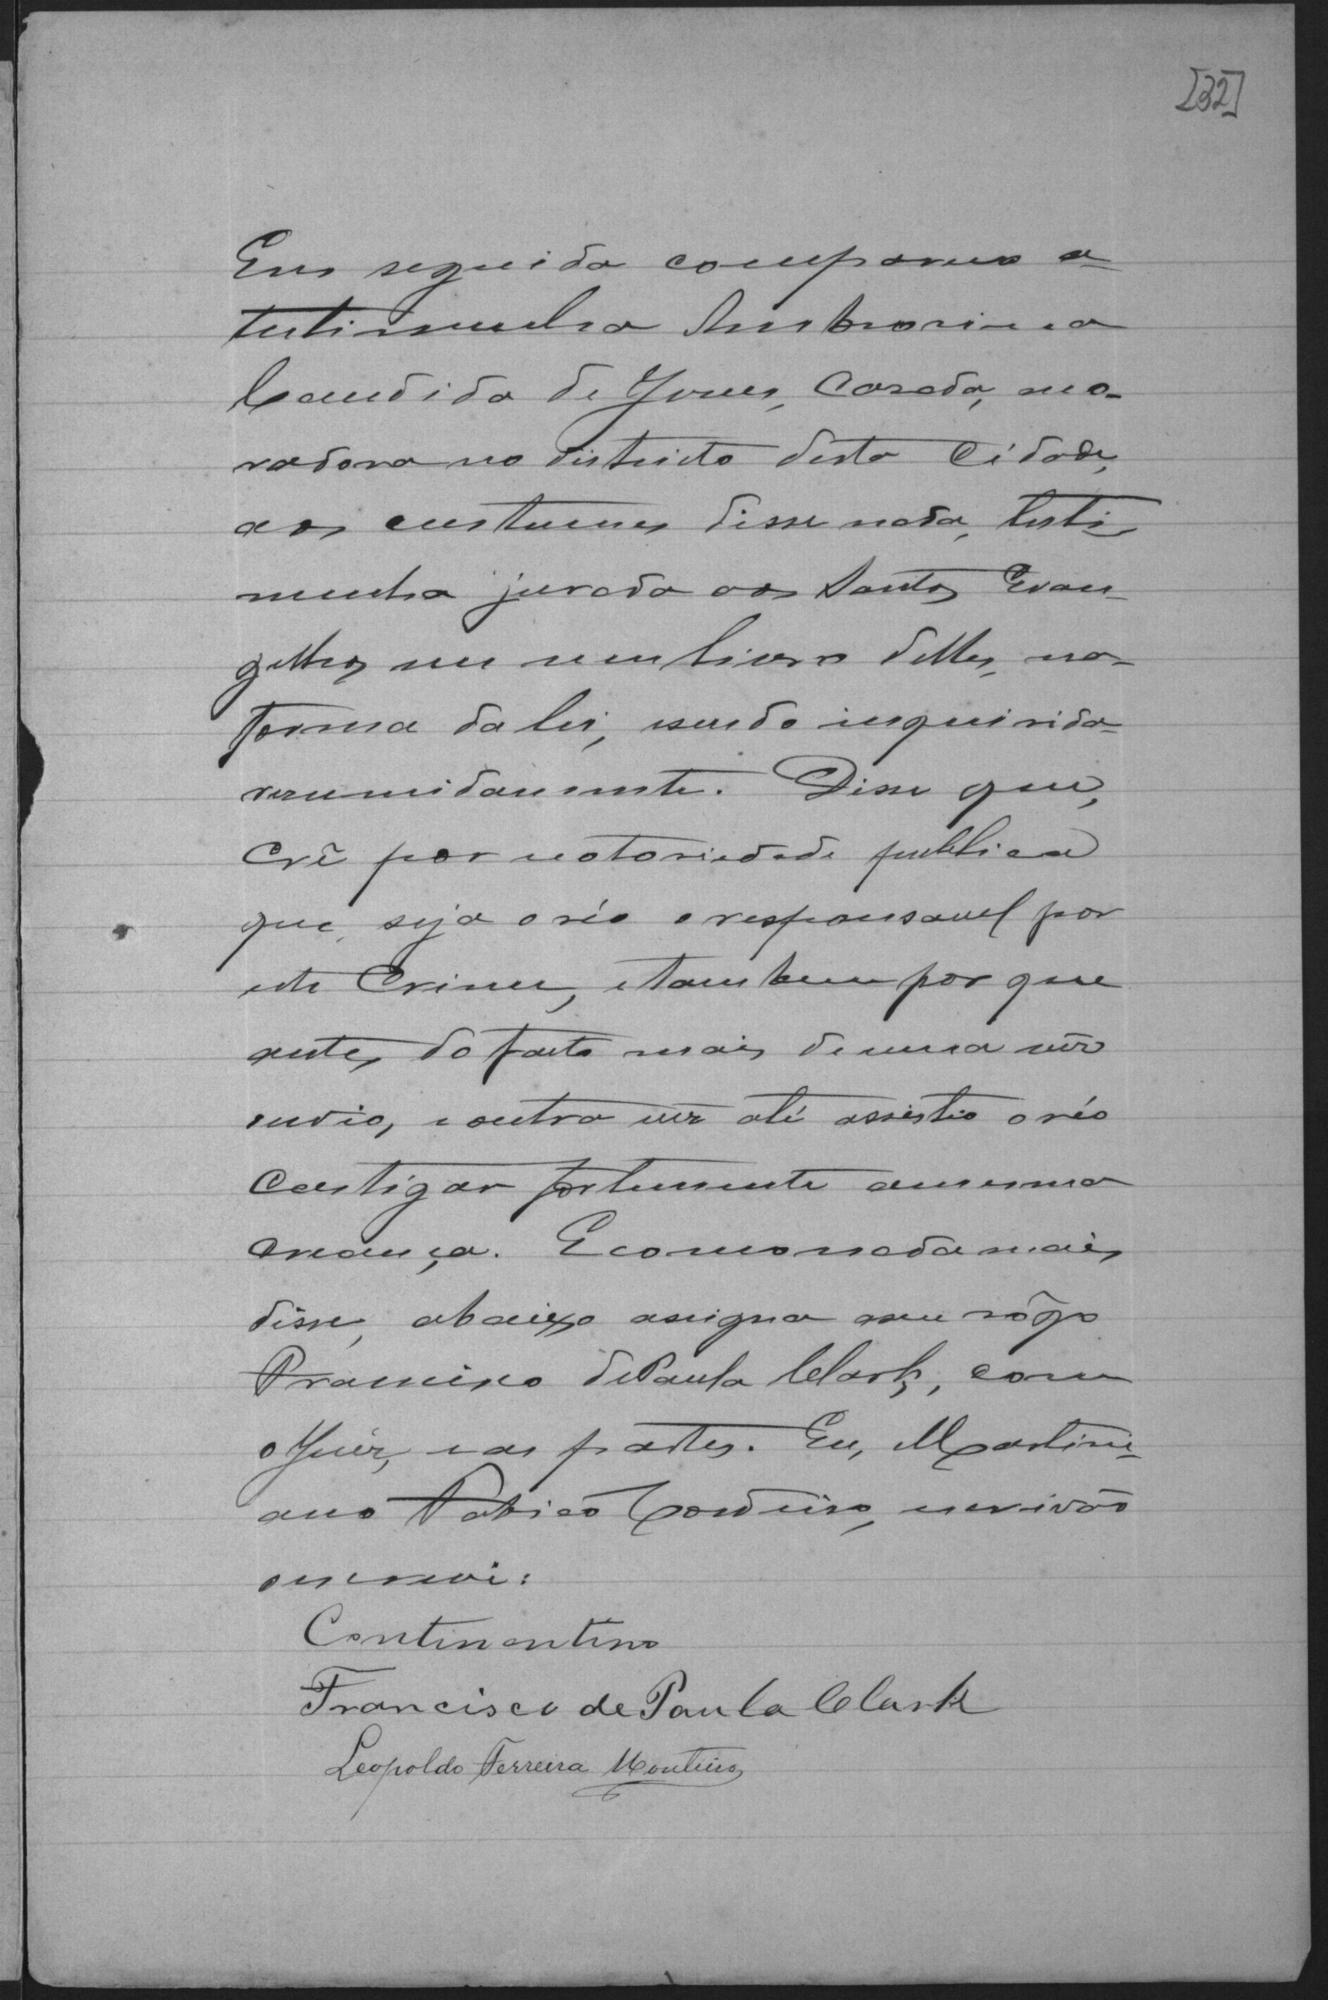 [32]
Em seguida compareceu a
testimunha Ambrosina
Candida de Jesus, casada, mo-
radora no districto desta Cidade,
aos custumes disse nada, testi-
munha jurada aos Santos Evan-
gelhos em um livro delles, na
forma da lei, sendo inquirida
resumidamente. Disse que,
crê por notoriedade publica
que seja o réo o responsavel por
este crime, e tambem por que
antes do facto mais de uma vêz
ouvio, e outra vez até assistio o réo
castigar fortemente a mesma
creança. E como nada mais
disse, abaixo assigna a seu rôgo
Francisco de Paula Clark, com
o Juiz, e as partes. Eu, Martini-
ano Cordeiro, escrivão
o escrevi:
Continentino
Francisco de Paula Clark
Leopoldo Ferreira Monteiro